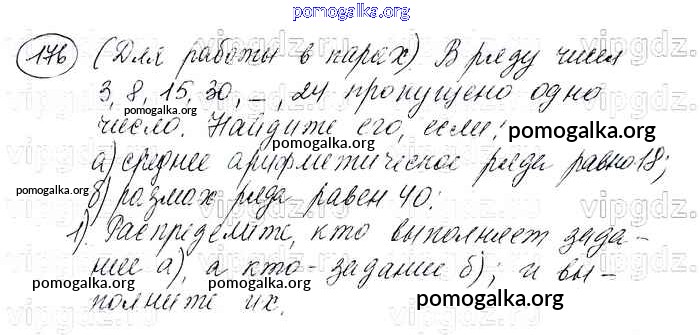 pomogalka.org
176 (Для работы в парах) В ряду чисел
3, 8, 15, 30, _, 24 пропущено одно
pomogalka.org
число. Найдите его, если:
pomogalka.org
а) среднее арифметическое ряда равно 18;
pomogalka.org
б) размах ряда равен 40;
pomogalka.org
1) Распределите, кто выполняет зада-
ние а), а кто - задание б); и вы-
полните их.
pomogalka.org
pomogalka.org